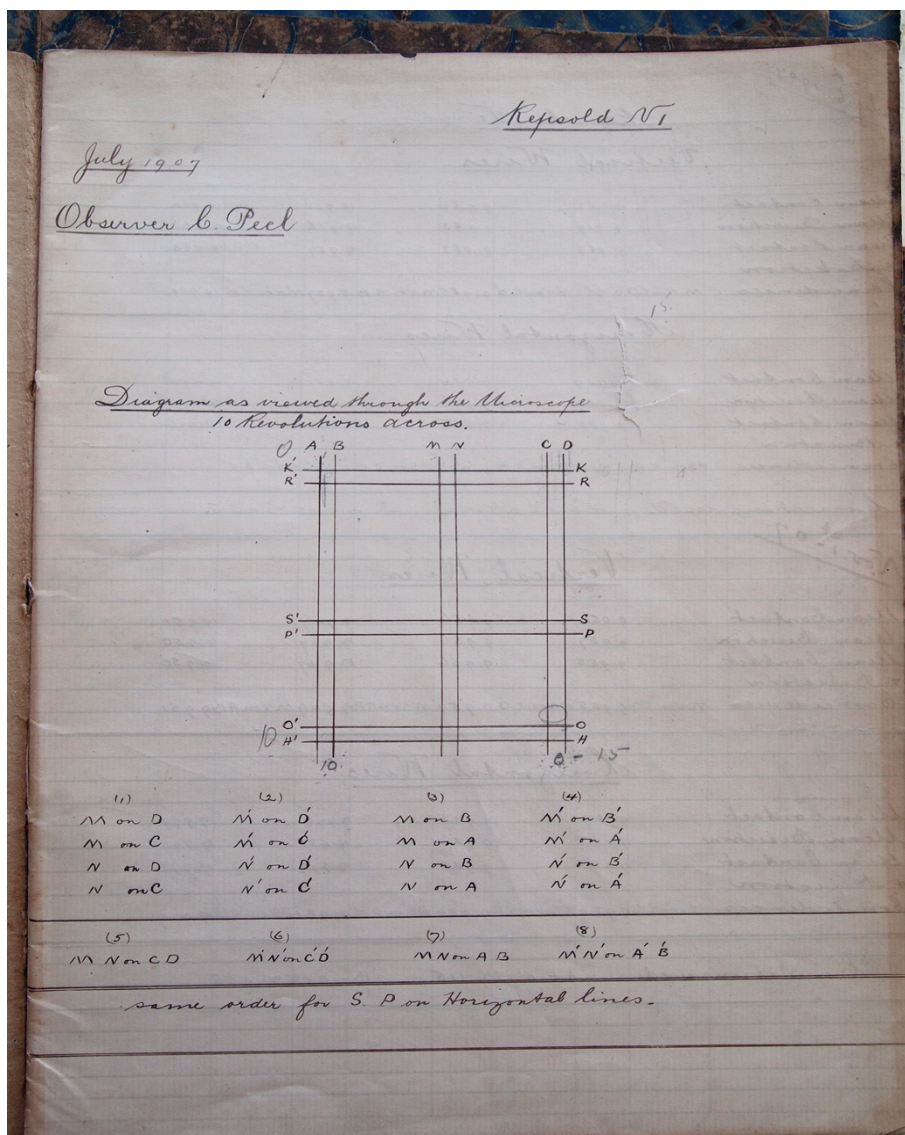 Repsold No 1
July 1907
Observer C. Peel
Diagram as viewed through the Microscope
10 Revolutions across.
0 A B M N C D
K' K
R' R
S' S
P' P
O' O
10 H' H
10 0 - 15
(1) (2) (3) (4)
M on D M' on D' M on B M' on B'
M on C M' on C' M on A M' on A'
N on D N' on D' N on B N' on B'
N on C N' on C' N on A N' on A'
(5) (6) (7) (8)
M N on C D M'N' on C'D' M N on A B M'N' on A' B'
same order for S. P on Horizontal lines.